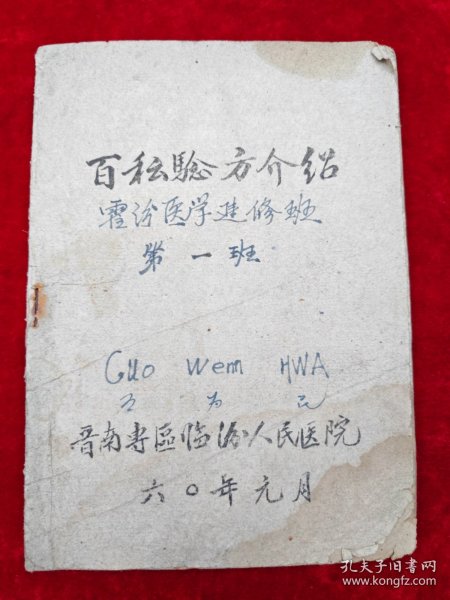 百私验方介绍
霍汾医学进修班
第一班
Guo Wem HWA
为
晋南专區临汾人民医院
六〇年元月
孔夫子旧书网
www.kongfz.com